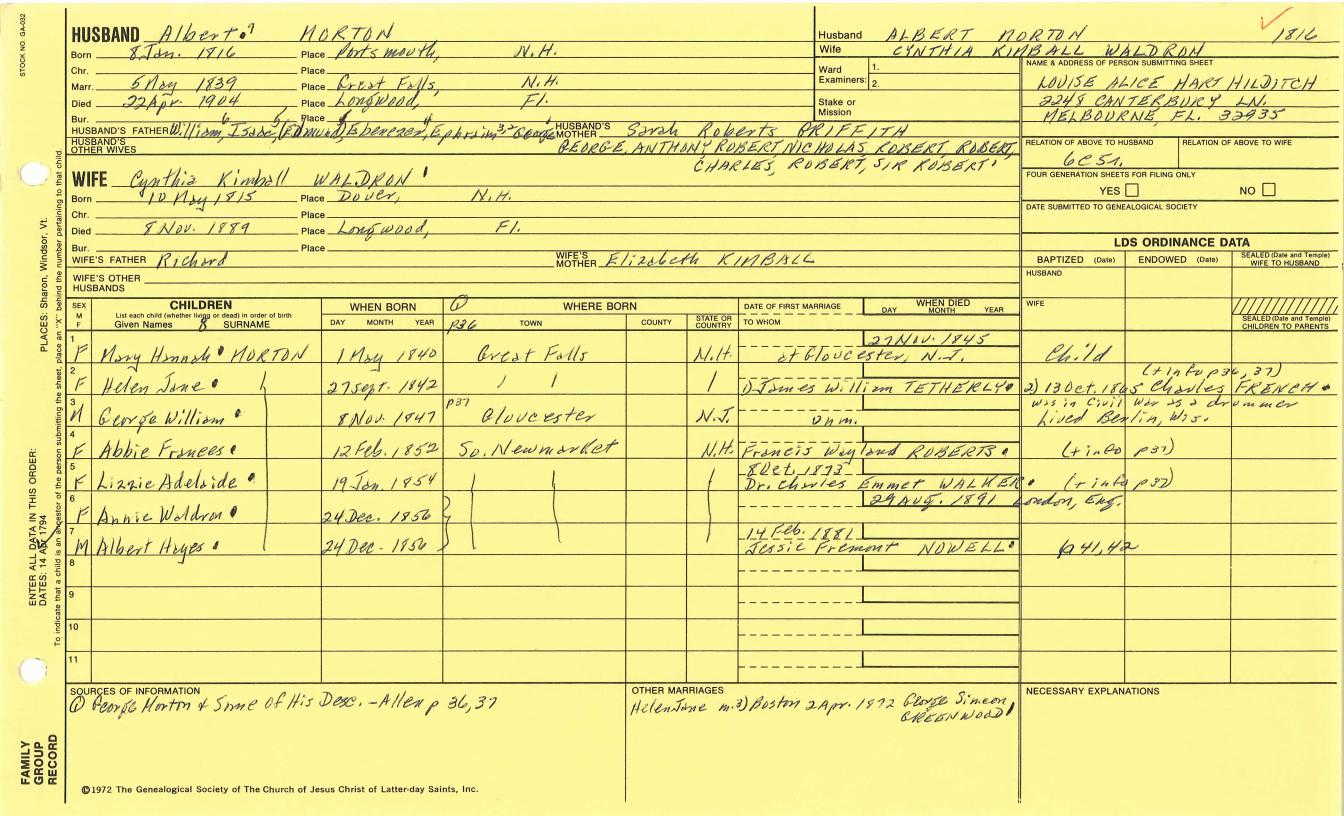 STOCK NO. GA-032
HUSBAND Albert MORTON
Born 8 Jan. 1816 Place Portsmouth, N.H.
Chr. Place
Marr. 5 May 1839 Place Great Falls, N.H.
Died 22 Apr. 1904 Place Longwood, Fl.
Bur. Place
HUSBAND'S FATHER William, Isaac, (Edmund), Ebenezer, Ephraim, George
HUSBAND'S MOTHER Sarah Roberts GRIFFITH
HUSBAND'S OTHER WIVES
GEORGE, ANTHONY ROBERT, NICHOLAS, ROBERT, ROBERT,
CHARLES, ROBERT, SIR ROBERT
Husband ALBERT MORTON 1816
Wife CYNTHIA KIMBALL WALDRON
Ward Examiners: 1.
2.
Stake or Mission
NAME & ADDRESS OF PERSON SUBMITTING SHEET
LOUISE ALICE HART HILDITCH
2248 CANTERBURY LN.
MELBOURNE, FL. 32935
RELATION OF ABOVE TO HUSBAND RELATION OF ABOVE TO WIFE
6C5r.
FOUR GENERATION SHEETS FOR FILING ONLY
YES NO
DATE SUBMITTED TO GENEALOGICAL SOCIETY
WIFE Cynthia Kimball WALDRON
Born 10 May 1815 Place Dover, N.H.
Chr. Place
Died 8 Nov. 1889 Place Longwood, Fl.
Bur. Place
WIFE'S FATHER Richard
WIFE'S MOTHER Elizabeth KIMBALL
WIFE'S OTHER HUSBANDS
LDS ORDINANCE DATA
BAPTIZED (Date) ENDOWED (Date) SEALED (Date and Temple) WIFE TO HUSBAND
HUSBAND
WIFE
SEALED (Date and Temple) CHILDREN TO PARENTS
SEX M F
CHILDREN
List each child (whether living or dead) in order of birth
Given Names 8 SURNAME
WHEN BORN
DAY MONTH YEAR
① p36
WHERE BORN
TOWN COUNTY STATE OR COUNTRY
DATE OF FIRST MARRIAGE
TO WHOM
WHEN DIED
DAY MONTH YEAR
27 Nov. 1845
1 F Mary Hannah MORTON 1 May 1840 Great Falls N.H. at Gloucester, N.J. Child
(+ info p36, 37)
2 F Helen Jane 27 Sept. 1842 " " " 1) James William TETHERLY 2) 13 Oct. 1865 Charles FRENCH
p37 was in Civil War as a drummer
3 M George William 8 Nov. 1847 Gloucester N.J. unm. Lived Berlin, Wis.
4 F Abbie Frances 12 Feb. 1852 So. Newmarket N.H. Francis Wayland ROBERTS (+ info p37)
8 Oct. 1873
5 F Lizzie Adelaide 19 Jan. 1854 Dr. Charles Emmet WALKER (+ info p37)
29 AUG. 1891 London, Eng.
6 F Annie Waldron 24 Dec. 1856
14 Feb. 1881
7 M Albert Hayes 24 Dec. 1856 Jessie Fremont NOWELL p41,42
8
9
10
11
SOURCES OF INFORMATION
① George Morton & Some of His Desc. - Allen p 36, 37
OTHER MARRIAGES
Helen Jane m. 3) Boston 2 Apr. 1872 George Simeon
GREENWOOD
NECESSARY EXPLANATIONS
©1972 The Genealogical Society of The Church of Jesus Christ of Latter-day Saints, Inc.
FAMILY GROUP RECORD
ENTER ALL DATA IN THIS ORDER:
DATES: 14 Apr 1794
PLACES: Sharon, Windsor, Vt.
To indicate that a child is an ancestor of the person submitting the sheet, place an "X" behind the number pertaining to that child.